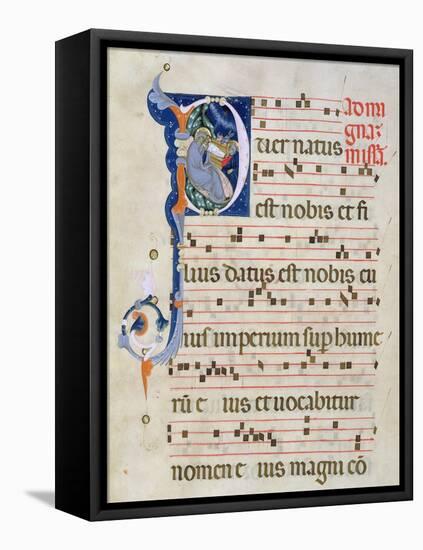 ad mi
gnaz
missā.
Puer natus
est nobis et fi
lius datus est nobis cu
ius imperium sup hume
rū e ius et uocabitur
nomen e ius magni cō